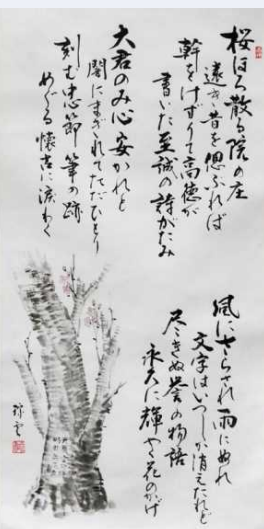 桜ほろ散る院の庄
遠き昔を偲ぶれば
幹をけずりて高徳が
書いた至誠の詩がたみ
大君のみ心安かれと
闇にまぎれてただひとり
刻む忠節筆の跡
めぐる懐古に涙わく
風にさらされ雨にぬれ
文字はいつしか消えたれど
尽きぬ誉の物語
永久に輝やく花のかげ